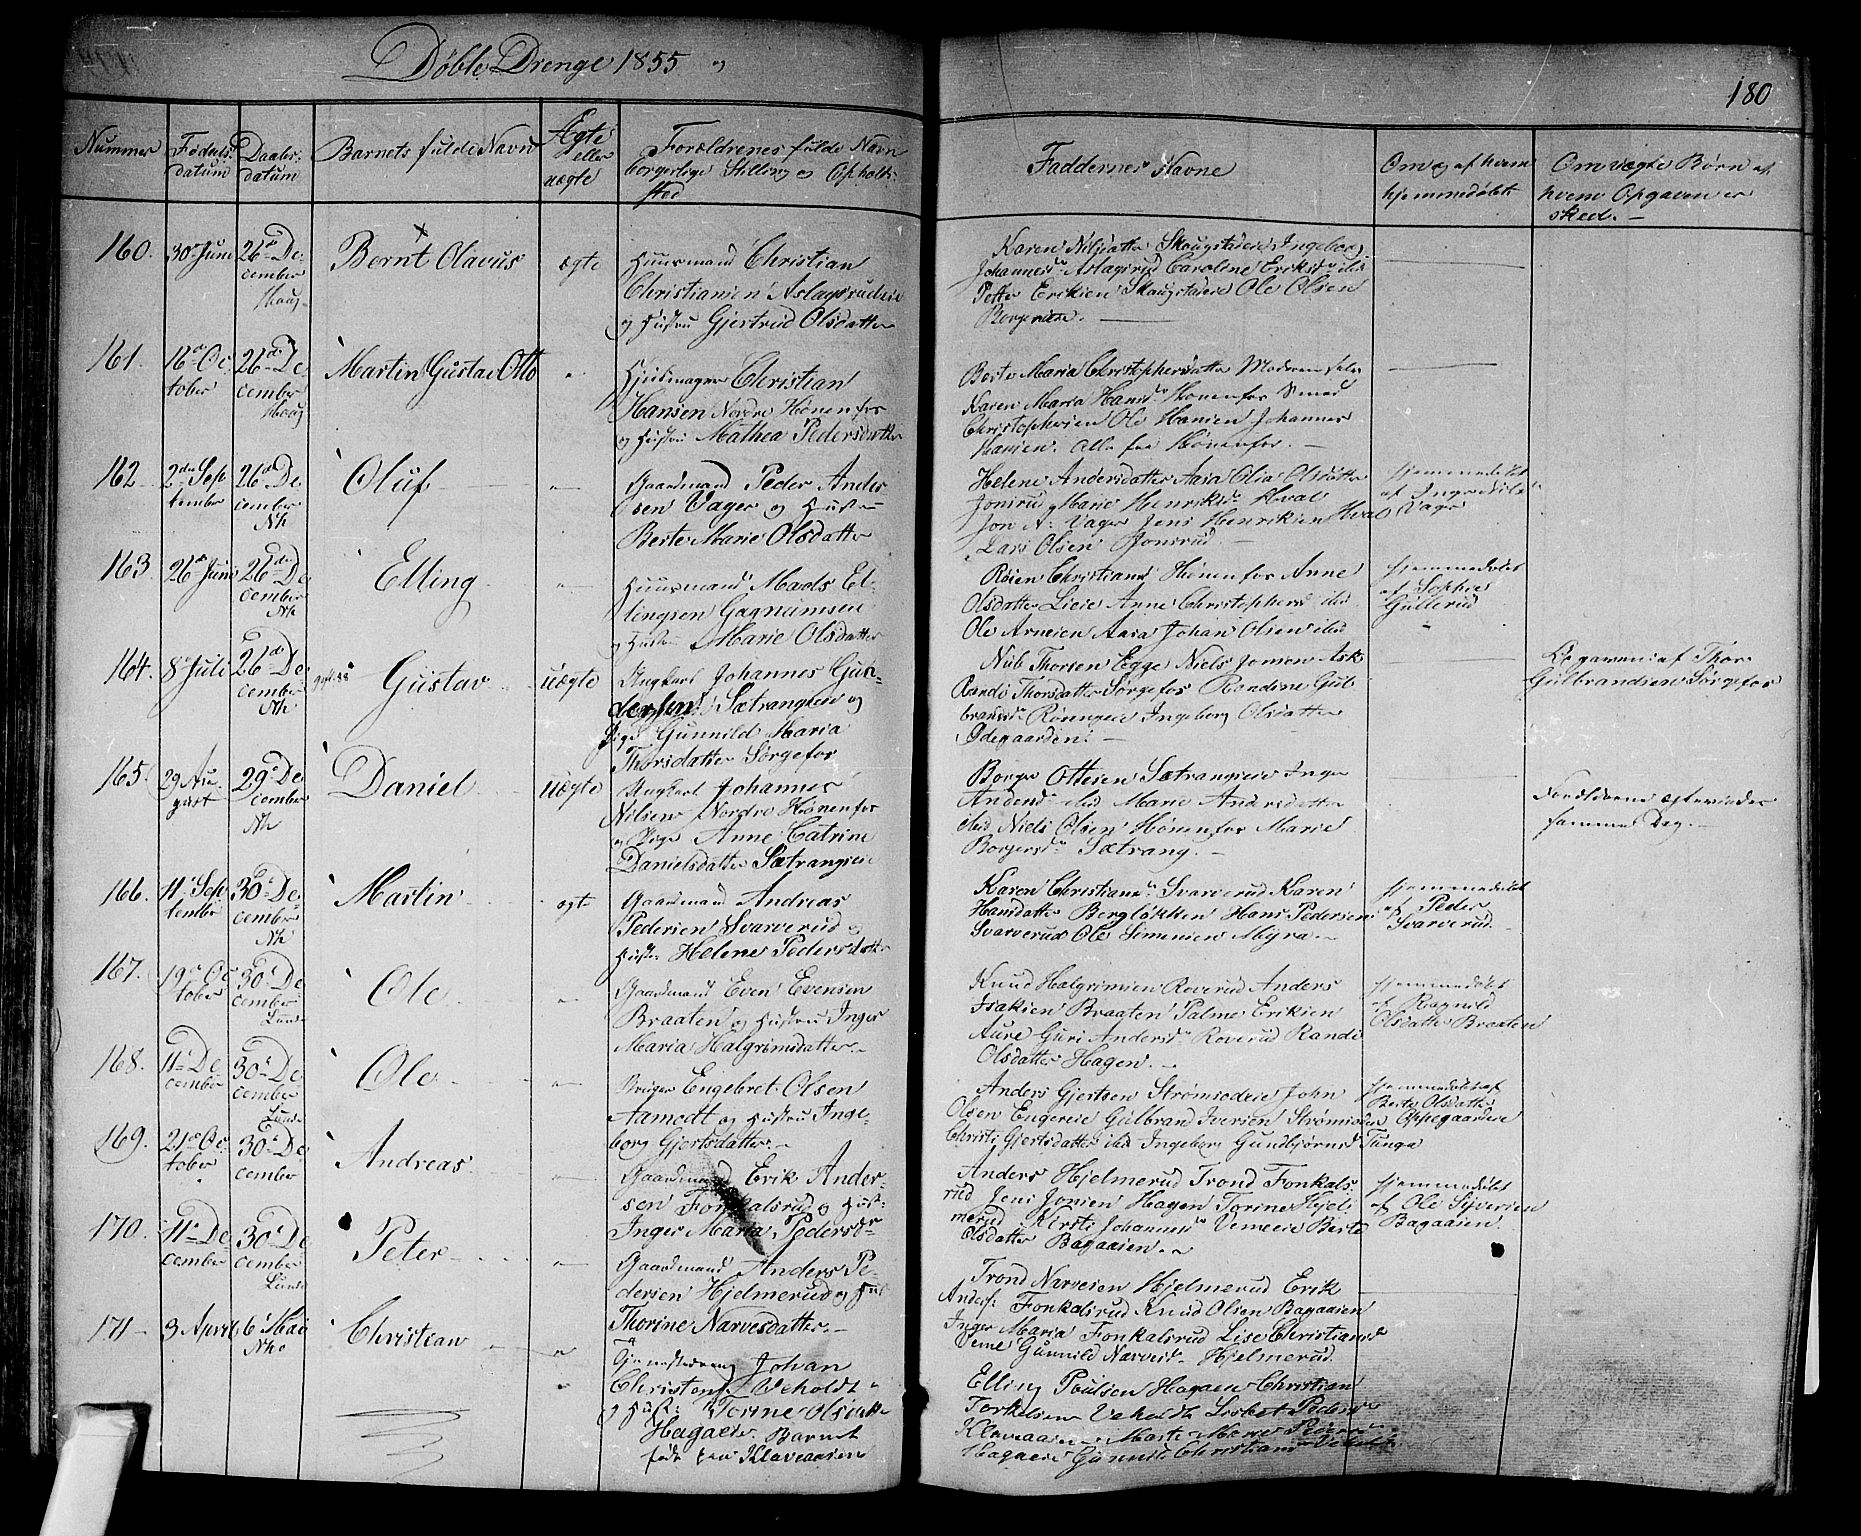 Døbte Drenge 1855
180
Nummer
Fødsels datum
Daabs datum
Barnets fulde Navn
Ægte eller uægte
Forældrenes fulde Navn borgerlige Stilling og Opholdssted
Faddernes Navne
Om og af hvem hjemmedøbt
Om uægte Børn af hvem Opgaven er skeed.
160.
30te Juni
26de December Haug
Bernt Olavus
ægte
Huusmand Christian
Christiansen Aslagsrudeie
og Hustru Gjertrud Olsdatter
Karen Nilsdatter Skougstadeie Ingeborg
Johannesdr Aslagsrud Caroline Eriksdr ibid
Petter Eriksen Skougstadeie Ole Olsen
161.
16de October
26de December Haug
Martin Gustav Otto
"
Hjulmager Christian
Hansen Nordre Hønenfos
og Hustru Mathea Pedersdatter
Berte Maria Christophersdatter Moderen selv
Karen Maria Hansdr Hønenfos
Christophersen Ole Hansen Johannes
Hansen. Alle fra Hønenfos.
162
2den September
26de December Nh
Oluf
"
Gaardmand Peder Ander-
sen Vager og Hustru
Berte Marie Olsdatter
Helene Andersdatter Aasa Olia Olsdatter
Jonsrud Marie Henriksdr Hval
Jon A: Vager Jens Henriksen Hval
Lars Olsen Jonsrud.
Hjemmedøbt
af Inger Nilsdr
Vager
163.
26de Juni
26de December Nh
Elling
"
Huusmand Mads El-
lengsen Gagnumseie
og Hustru Marie Olsdatter
Christiansd Hønenfos Anne
Olsdatter Lieie Anne Christophersd ibid
Ole Arnesen Aasa Johan Olsen ibid
Hjemmedøbt
af Sophie
Gullerud
164.
8de Juli
26de December Nh
Gustav
uægte
Ungkarl Johannes Gun-
dersen Sætrangeie og
Pige Gunnild Maria
Thorsdatter Sørgefos
Nub Thorsen Egge Niels Jonsen Ask
Randi Thorsdatter Sørgefos Randine Gul
brandsdr Ingeborg Olsdatter
Ødegaarden.
Opgaven af Thor
Gulbrandsen Sørgefos
165.
29 August
29de December Nh
Daniel
uægte
Ungkarl Johannes
Nilsen Nordre Hønenfos
og Pige Anne Catrine
Danielsdatter Sætrangeie
Borger Ottesen Sætrangeie Inger
Andersdr ibid Marie Andersdatter
ibid Niels Olsen Hønenfos Marie
Borgersdr Sætrang.
Forældrene ægteviedes
samme Dag.
166.
11te September
30te December Nh
Martin
ægte
Gaardmand Andreas
Pedersen Svarverud og
Hustru Helene Pedersdatter
Karen Christiansdr Svarverud Karen
Hansdatter Bergløkken Hans Pedersen
Svarverud Ole Simensen Myra.
Hjemmedøbt
af Peder
Svarverud.
167.
19de October
30te December Lunde
Ole
"
Gaardmand Even Evensen
Braaten og Hustru Inger
Maria Halgrimsdatter.
Knud Halgrimsen Roverud Anders
Isaksen Braaten Palme Eriksen
Aure Guri Andersdr Roverud Randi
Olsdatter Hagen.
Hjemmedøbt
af Ragnild
Olsdatter Braaten
168.
11te December
30te December Lunde
Ole
"
Bruger Engebret Olsen
Aamodt og Hustru Inge-
borg Gjertsdatter.
Anders Gjertsen Strømsodeie John
Olsen Engereie Gulbrand Iversen Strømsoden
Christi Gjertsdatter ibid Ingeborg Gundbjørnsd Tunga
Hjemmedøbt af
Berte Olsdatter
Oppegaardeie
169.
21de October
30te December
Andreas
"
Gaardmand Erik Ander-
sen Fonkalsrud og Hust:
Inger Maria Pedersdr
Anders Hjelmerud Trond Fonkals
rud Jens Jonsen Hagen Torine Hjel
merud Kirsti Johannesdr Vemeeie Berte
Olsdatter Bagaasen.
Hjemmedøbt
af Ole Syversen
Bagaasen.
170.
11te December
30te December Lunde
Peter
"
Gaardmand Anders Pe-
dersen Hjelmerud og Hust
Thorine Narvesdatter.
Trond Narvesen Hjelmerud Erik
Anders: Fonkalsrud Knud Olsen Bagaasen
Inger Maria Fonkalsrud Lise Christiansdr
Veme Gunnild Narvesdr Hjelmerud
171
3 April
6te Mai
Christian
"
Tjenestedreng Johan
Christens: Veholdt
og Hust: Torine Olsdatter
Hagaeie Barnet
født paa Klaveaasen
Elling Poulsen Hagaeie Christian
Torkelsen Veholdt Lisbet Pedersdr
Klaveaasen Marte Marie
Hagaeie Gunnild Christiansdr